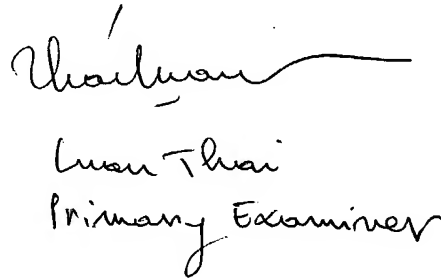 Thailuan
Luan Thai
Primary Examiner